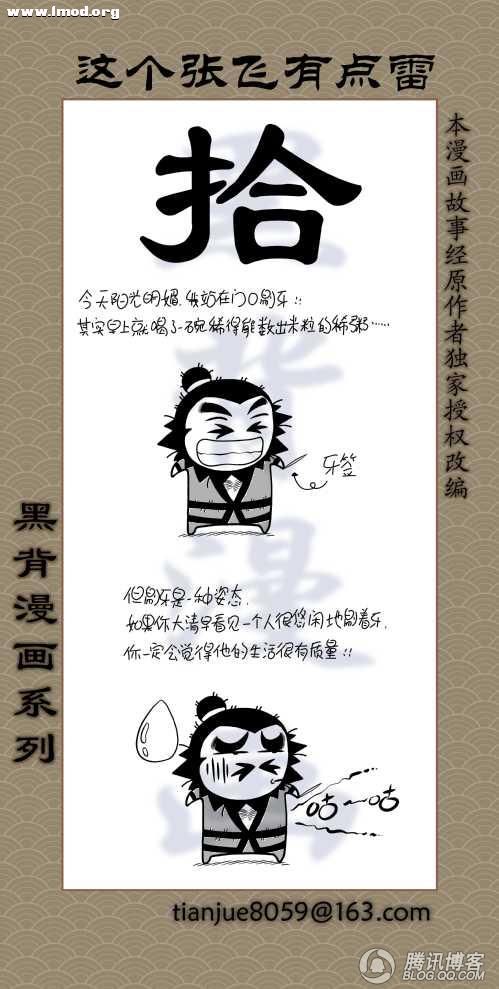 www.lmod.org
这个张飞有点雷
拾
本漫画故事经原作者独家授权改编
今天阳光明媚，我站在门口刷牙！！
其实早上就喝了一碗稀得能数出米粒的稀粥……
牙签
但刷牙是一种姿态，
如果你大清早看见一个人很悠闲地刷着牙，
你一定会觉得他的生活很有质量！！
咕～咕
黑背漫画系列
tianjue8059@163.com
腾讯博客
BLOG.QQ.COM